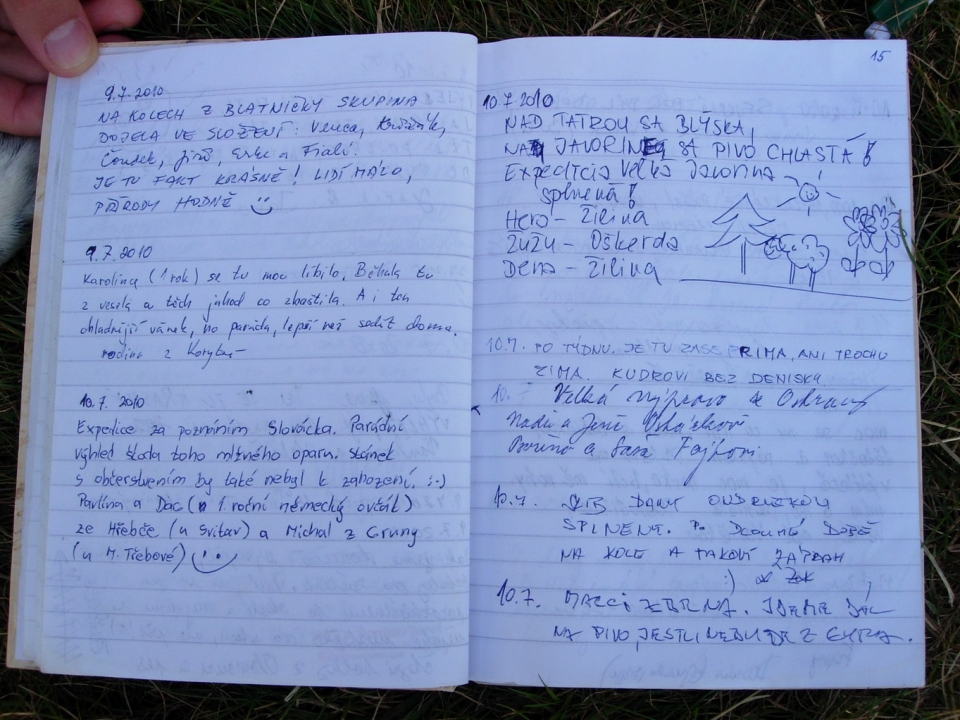 9.7.2010
NA KOLECH Z BLATNIČKY SKUPINA
DOJELA VE SLOŽENÍ: Venca,
Čousek, Jirš, Erbe a Fiala.
JE TU FAKT KRÁSNĚ! LIDÍ MÁLO,
PŘÍRODY HODNĚ
9.7.2010
Karolína (1 rok) se tu moc líbilo. Běhala tu
z vesela a těch jahod co zbaštila. A i ten
chladnější vánek, no paráda, lepší než sedět doma.
rodina z Koryčan
10.7. 2010
Expedice za poznáním Slovácka. Parádní
výhled škoda toho mlžného oparu. Stánek
s občerstvením by také nebyl k zahození. :-)
Pavlína a Dác (1.roční německý ovčák)
ze Hřebče (u Svitav) a Michal z Gruny
(u M. Třebové)
15
10.7.2010
NAD TATROU SA BLÝSKA,
NA JAVORINE SA PIVO CHLASTÁ!
Expedícia Veľká Javorina
splnená!
Hero - Žilina
Zuzu - Oškerda
Dena - Žilina
10.7. PO TÝDNU JE TU ZASE PRIMA, ANI TROCHU
ZIMA. KUDROVI BEZ DENISKY
10. Velká výprava z Ostravy
Naďa a Jiří
a Saša
10.7. SLIB DANÝ
SPLNĚNÝ. Po DLOUHÉ DOBĚ
NA KOLE A TAKOVÝ ZÁPRAH
:)
10.7. JDEME DÁL
NA PIVO, JESTLI NEBUDE Z